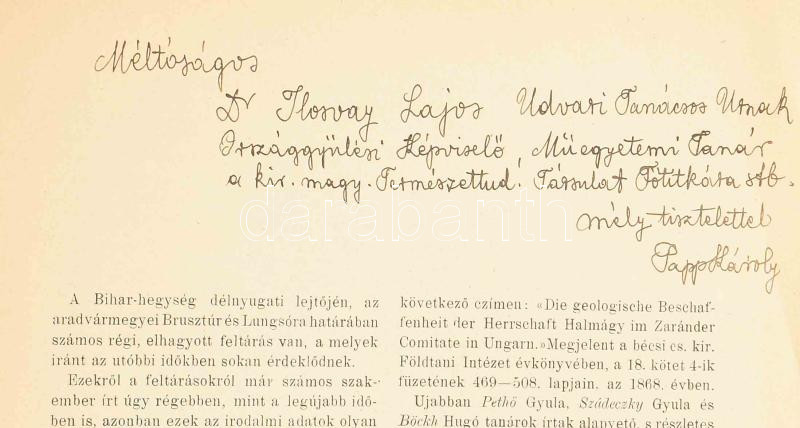 Méltóságos
Dr Ilosvay Lajos Udvari Tanácsos Urnak
Országgyülési Képviselő, Műegyetemi Tanár
a kir. magy. Természettud. Társulat Főtitkára stb.
mély tisztelettel
Papp Károly
darabanth
A Bihar-hegység délnyugati lejtőjén, az
aradvármegyei Brusztúr és Lungsóra határában
számos régi, elhagyott feltárás van, a melyek
iránt az utóbbi időkben sokan érdeklődnek.
Ezekről a feltárásokról már számos szak-
ember írt úgy régebben, mint a legújabb idő-
ben is, azonban ezek az irodalmi adatok olyan
következő czímen: «Die geologische Beschaf-
fenheit der Herrschaft Halmágy im Zaránder
Comitate in Ungarn.» Megjelent a bécsi cs. kir.
Földtani Intézet évkönyvében, a 18. kötet 4-ik
füzetének 469—508. lapjain, az 1868. évben.
Ujabban Pethő Gyula, Szádeczky Gyula és
Böckh Hugó tanárok írtak alapvető, s részletes